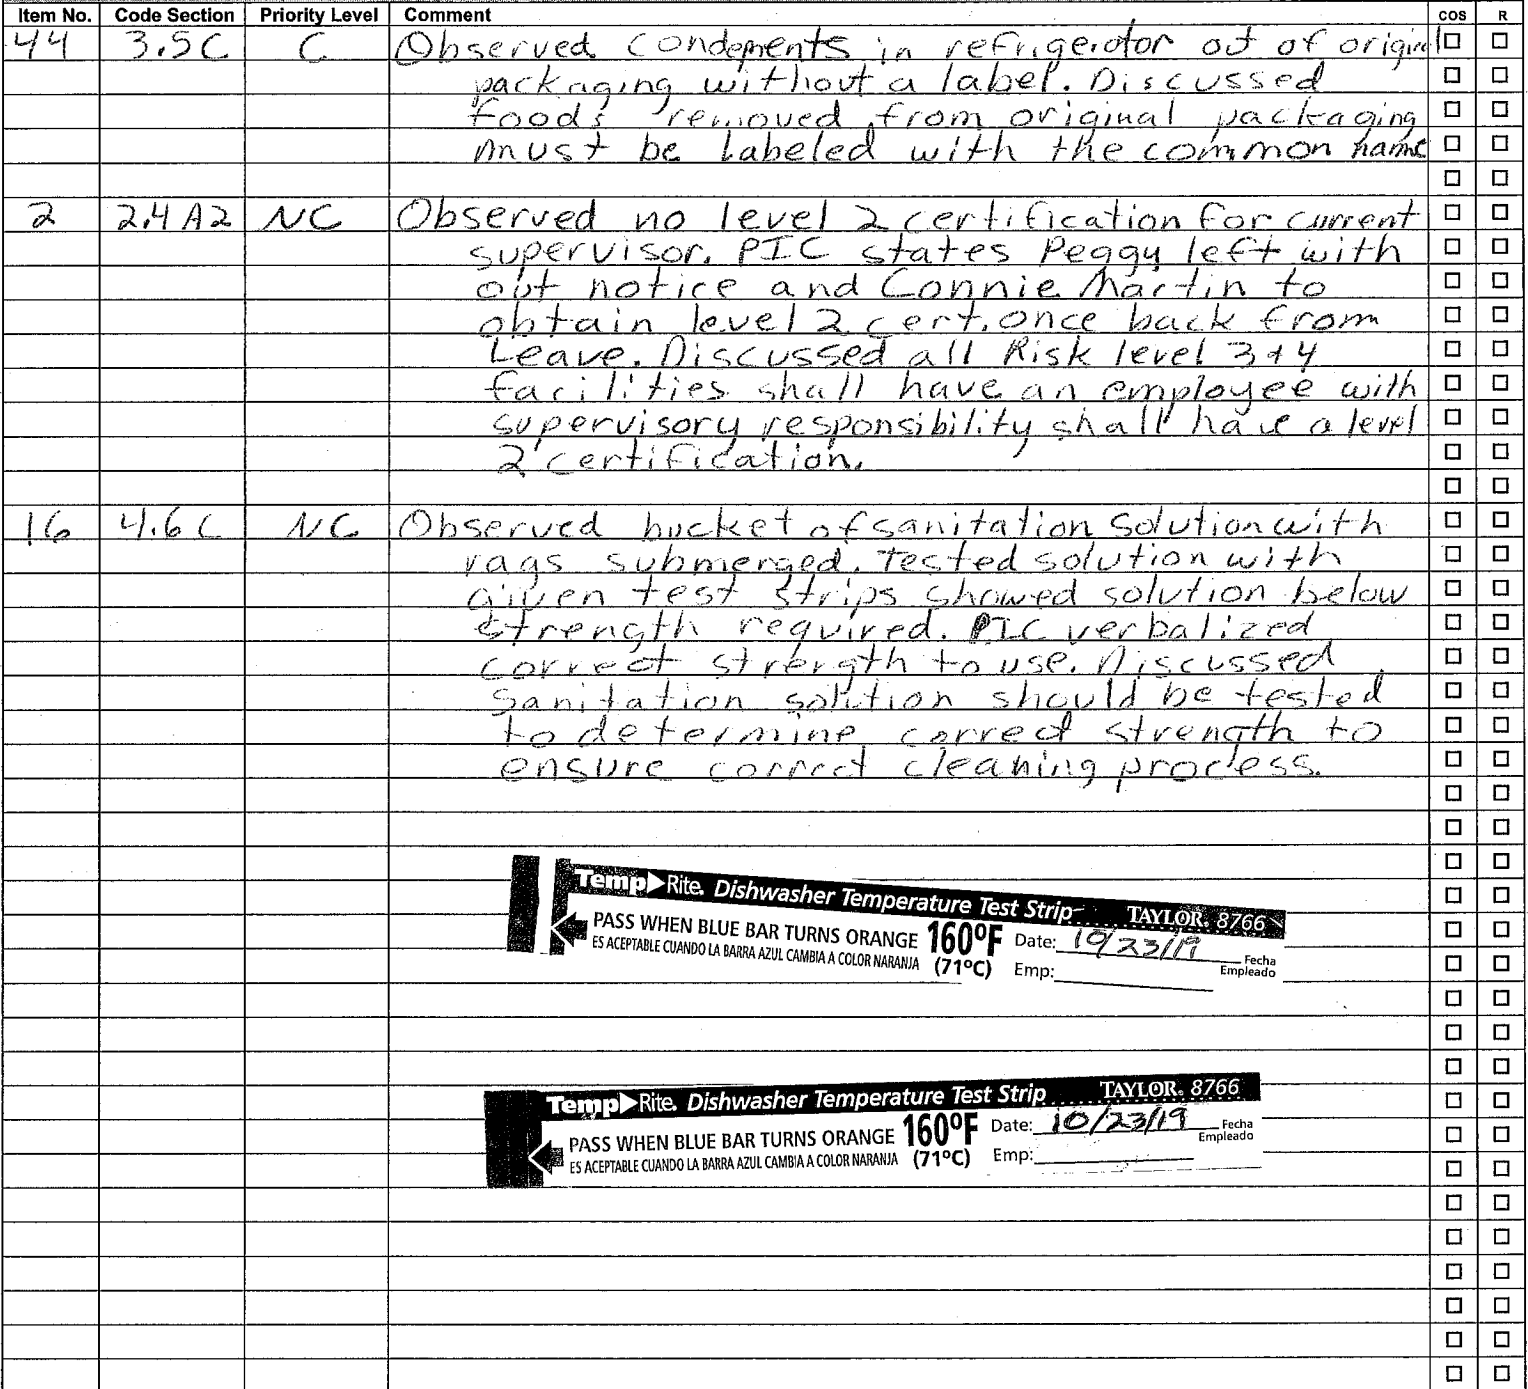 Item No. Code Section Priority Level Comment COS R
44 3.5C C Observed condements in refrigerator out of original
packaging without a label. Discussed
foods removed from original packaging
must be labeled with the common name
2 2.4 A2 NC Observed no level 2 certification for current
supervisor. PIC states Peggy left with
out notice and Connie Martin to
obtain level 2 cert. once back from
Leave. Discussed all Risk level 3+4
facilities shall have an employee with
supervisory responsibility shall have a level
2 certification.
16 4.6 C NC Observed bucket of sanitation solution with
rags submerged. Tested solution with
given test strips showed solution below
strength required. PIC verbalized
correct strength to use. Discussed
Sanitation solution should be tested
to determine correct strength to
ensure correct cleaning process.
Temp Rite. Dishwasher Temperature Test Strip TAYLOR. 8766
PASS WHEN BLUE BAR TURNS ORANGE 160°F Date: 10/23/19 Fecha
ES ACEPTABLE CUANDO LA BARRA AZUL CAMBIA A COLOR NARANJA (71°C) Emp: Empleado
Temp Rite. Dishwasher Temperature Test Strip TAYLOR. 8766
PASS WHEN BLUE BAR TURNS ORANGE 160°F Date: 10/23/19 Fecha
ES ACEPTABLE CUANDO LA BARRA AZUL CAMBIA A COLOR NARANJA (71°C) Emp: Empleado